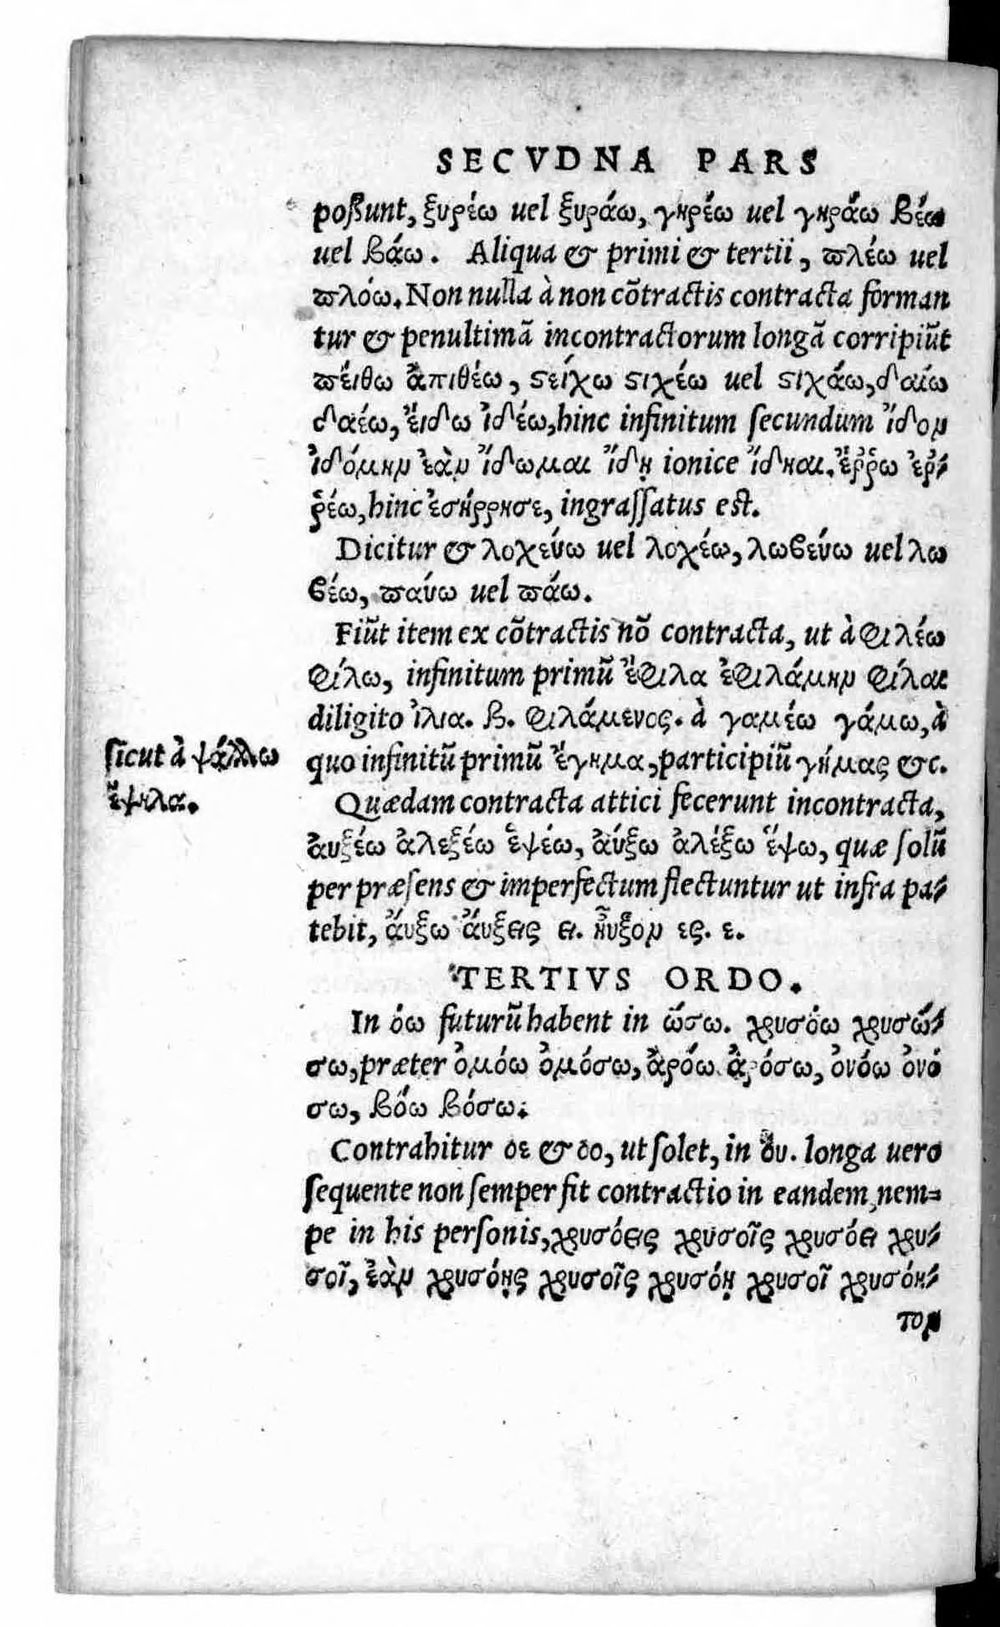 SECVDNA PARS
poßunt, ξυρέω uel ξυράω, γηρέω uel γηράω βέω
uel βάω. Aliqua & primi & tertii, πλέω uel
πλόω. Non nulla à non cõtractis contracta forman
tur & penultimã incontractorum longã corripiũt
πείθω ἀπιθέω, στείχω στιχέω uel στιχάω, δαίω
δαέω, ἔιδω ἰδέω, hinc infinitum ſecundum ἴδον
ἰδόμην ἐὰν ἴδωμαι ἴδῃ ionice ἴδηαι. ἔῤῥω ἐῤ-
ῥέω, hinc ἐσήρρησε, ingraſſatus est.
Dicitur & λοχεύω uel λοχέω, λωβεύω uel λω
βέω, παύω uel πάω.
Fiũt item ex cõtractis nõ contracta, ut à φιλέω
φίλω, infinitum primũ ἔφιλα ἐφιλάμην φίλαι
diligito ἰλια. β. φιλάμενος. à γαμέω γάμω, à
quo infinitũ primũ ἔγημα, participiũ γήμας &c.
sicut à ψάλλω
ἔψηλα.
Quædam contracta attici fecerunt incontracta,
ἀυξέω ἀλεξέω ἑψέω, ἀύξω ἀλέξω ἕψω, quæ ſolũ
per præſens & imperfectum flectuntur ut infra pa-
tebit, ἄυξω ἄυξεις ει. ἦυξον ες. ε.
TERTIVS ORDO.
In όω futurũ habent in ώσω. χρυσόω χρυσώ-
σω, præter ὀμόω ὀμόσω, ἀρόω ἀρόσω, ὀνόω ὀνό
σω, βόω βόσω.
Contrahitur οε & οο, ut ſolet, in ου. longa uero
ſequente non ſemper fit contractio in eandem, nem=
pe in his perſonis, χρυσόεις χρυσοῖς χρυσόει χρυ-
σοῖ, ἐὰν χρυσόῃς χρυσοῖς χρυσόῃ χρυσοῖ χρυσόη-
τον